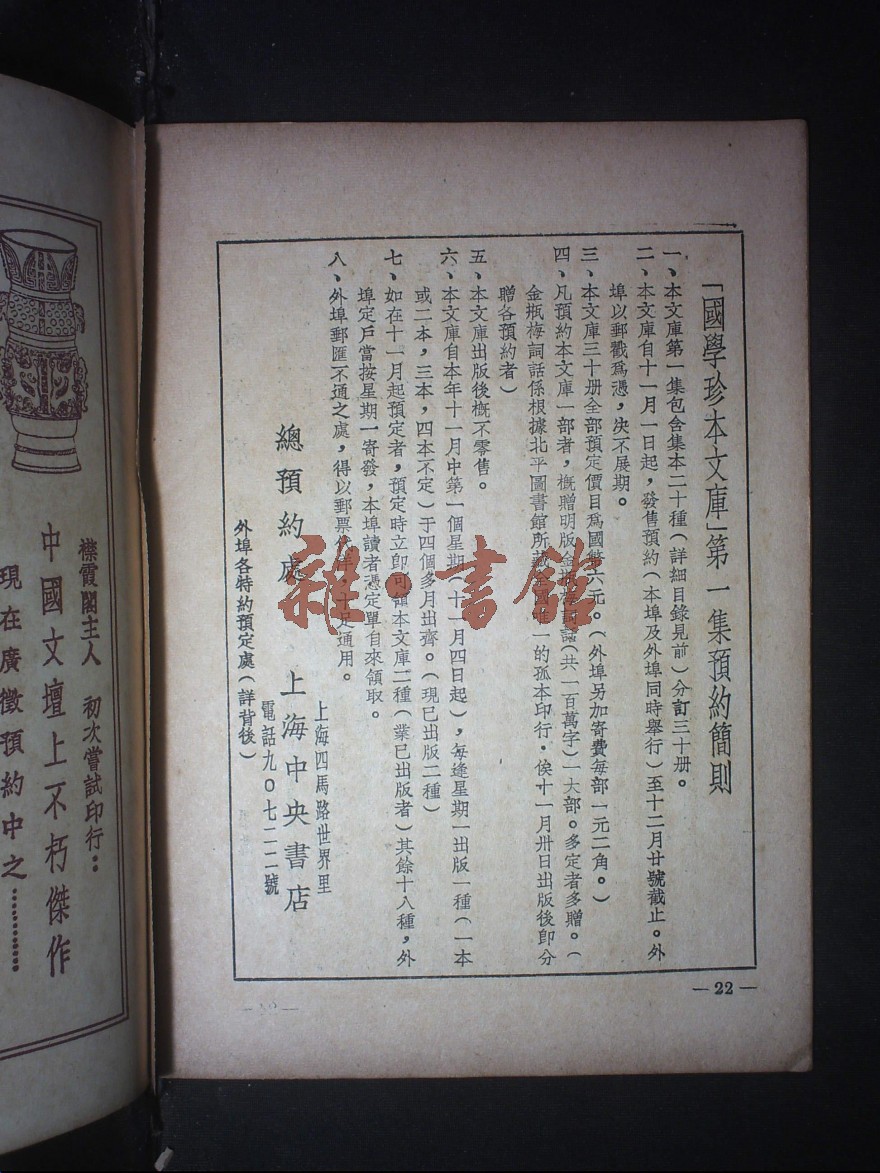 「國學珍本文庫」第一集預約簡則
一、本文庫第一集包含集本二十種（詳細目錄見前）分訂三十册。
二、本文庫自十一月一日起，發售預約（本埠及外埠同時舉行）至十二月廿號截止。外
埠以郵戳爲憑，決不展期。
三、本文庫三十册全部預定價目爲國幣六元。（外埠另加寄費每部一元二角。）
四、凡預約本文庫一部者，槪贈明版金瓶梅詞話（共一百萬字）一大部。多定者多贈。（
金瓶梅詞話係根據北平圖書館所藏全國唯一的孤本印行・俟十一月卅日出版後卽分
贈各預約者）
五、本文庫出版後槪不零售。
六、本文庫自本年十一月中第一個星期（十一月四日起），每逢星期一出版一種（一本
或二本，三本，四本不定）于四個多月出齊。（現已出版二種）
七、如在十一月起預定者，預定時立卽可領本文庫二種（業已出版者）其餘十八種，外
埠定戶當按星期一寄發，本埠讀者憑定單自來領取。
八、外埠郵匯不通之處，得以郵票代洋，十足通用。
總預約處 上海中央書店
上海四馬路世界里
電話九〇七二二號
外埠各特約預定處（詳背後）
— 22 —
雜・書館
襟霞閣主人 初次嘗試印行：
中國文壇上不朽傑作
現在廣徵預約中之…………